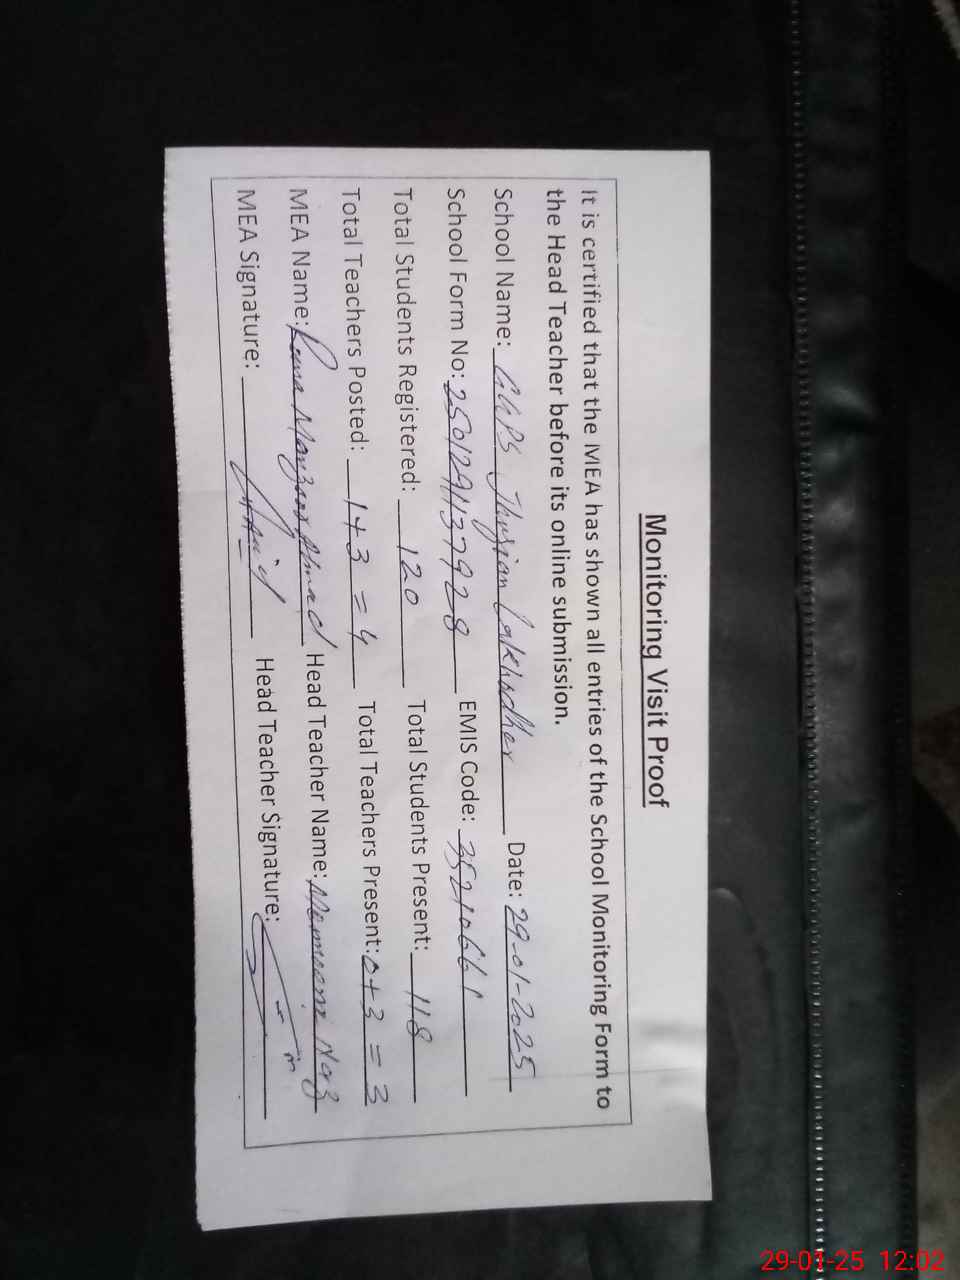 Monitoring Visit Proof
It is certified that the MEA has shown all entries of the School Monitoring Form to
the Head Teacher before its online submission.
School Name: GGPS Jhugian Lakhodher Date: 29-01-2025
School Form No: 2501291137928 EMIS Code: 35210661
Total Students Registered: 120 Total Students Present: 118
Total Teachers Posted: 1+3 = 4 Total Teachers Present: 0+3 = 3
MEA Name: Rana Manzoor Ahmad Head Teacher Name: Naz
MEA Signature: Head Teacher Signature:
29-01-25 12:02